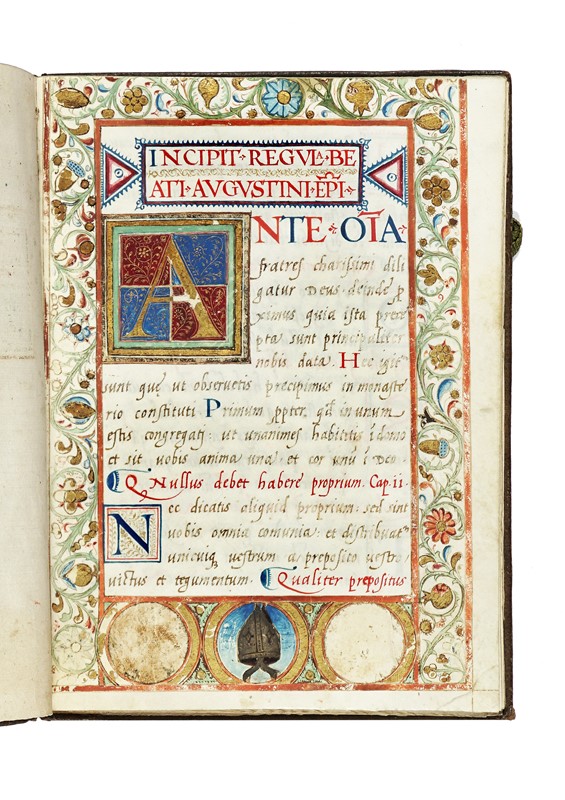 INCIPIT REGVLA BE
ATI AVGVSTINI EPĪ
ANTE OĪA
fratres charissimi dili
gatur Deus deinde ꝓ
ximus quia ista prece
pta sunt principaliter
nobis data. Hec igit
sunt que ut obseruetis precipimus in monaste
rio constituti Primum ꝓpter qđ in unum
estis congregati: ut unanimes habitetis ī domo
et sit uobis anima una et cor unū ī Deo
Nullus debet habere proprium. Cap. ii.
Nec dicatis aliquid proprium: sed sint
uobis omnia comunia: et distribuat
unicuiqꝫ uestrum a preposito uestro
uictus et tegumentum. Qualiter prepositus